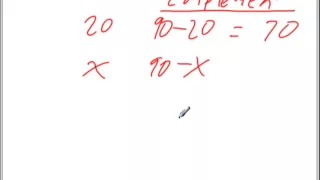 Complement
20 90-20 = 70
x 90-x